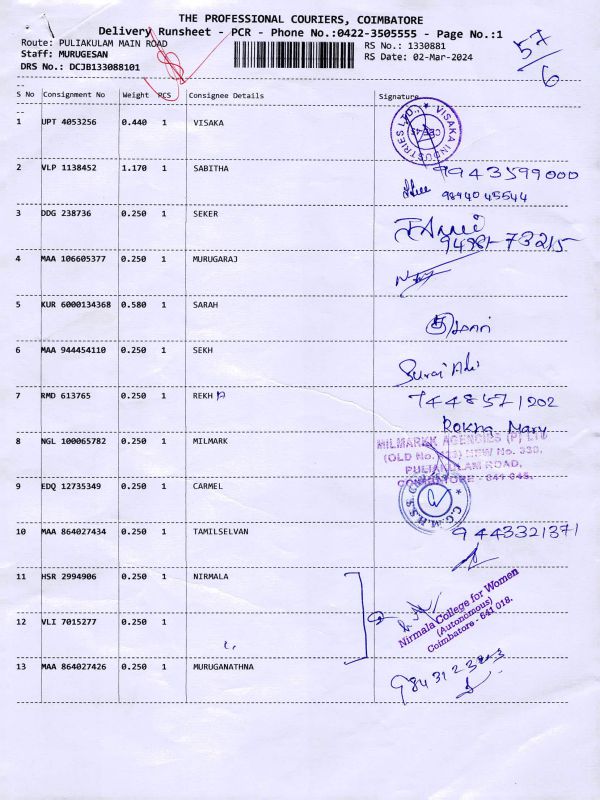 THE PROFESSIONAL COURIERS, COIMBATORE
Delivery Runsheet - PCR - Phone No.:0422-3505555 - Page No.:1
Route: PULIAKULAM MAIN ROAD
Staff: MURUGESAN
DRS No.: DCJB133088101
RS No.: 1330881
RS Date: 02-Mar-2024
57
6
S No Consignment No Weight PCS Consignee Details Signature
1 UPT 4053256 0.440 1 VISAKA
VISAKA INDUSTRIES LTD.,
2 VLP 1138452 1.170 1 SABITHA 9943599000
9894045544
3 DDG 238736 0.250 1 SEKER
4 MAA 106605377 0.250 1 MURUGARAJ
5 KUR 6000134368 0.580 1 SARAH
6 MAA 944454110 0.250 1 SEKH
7 RMD 613765 0.250 1 REKHA 7448571202
Rokha Mary
8 NGL 100065782 0.250 1 MILMARK
MILMARKK AGENCIES (P) LTD
PULIAKULAM ROAD,
COIMBATORE - 641 045.
9 EDQ 12735349 0.250 1 CARMEL
C.G.M.H.S.S
10 MAA 864027434 0.250 1 TAMILSELVAN 9443321371
11 HSR 2994906 0.250 1 NIRMALA
12 VLI 7015277 0.250 1
Nirmala College for Women
(Autonomous)
Coimbatore - 641 018.
13 MAA 864027426 0.250 1 MURUGANATHNA